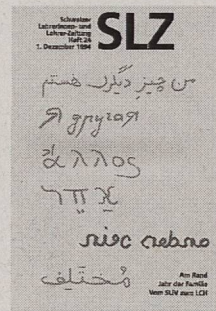 Schweizer
Lehrerinnen- und
Lehrer-Zeitung
Heft 24
1. Dezember 1994
SLZ
من چیز دیگری هستم
Я другая
ἄλλος
مختلف
Am Rand
Jahr der Familie
Vom SLV zum LCH